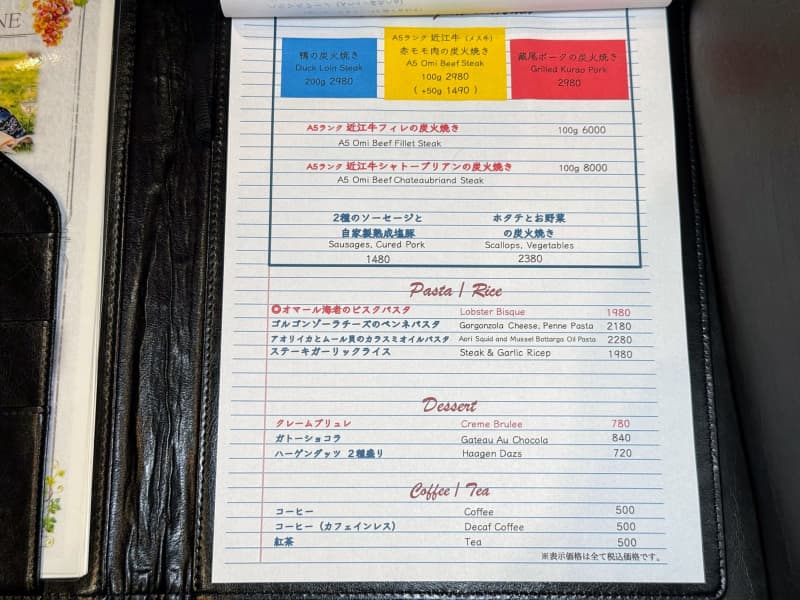 NE
鴨の炭火焼き
Duck Loin Steak
200g 2980
A5ランク 近江牛 (メス牛)
赤モモ肉の炭火焼き
A5 Omi Beef Steak
100g 2980
( +50g 1490 )
蔵尾ポークの炭火焼き
Grilled Kurao Pork
2980
A5ランク 近江牛フィレの炭火焼き 100g 6000
A5 Omi Beef Fillet Steak
A5ランク 近江牛シャトーブリアンの炭火焼き 100g 8000
A5 Omi Beef Chateaubriand Steak
2種のソーセージと
自家製熟成塩豚
Sausages, Cured Pork
1480
ホタテとお野菜
の炭火焼き
Scallops, Vegetables
2380
Pasta / Rice
◎オマール海老のビスクパスタ Lobster Bisque 1980
ゴルゴンゾーラチーズのペンネパスタ Gorgonzola Cheese, Penne Pasta 2180
アオリイカとムール貝のカラスミオイルパスタ Aori Squid and Mussel Bottarga Oil Pasta 2280
ステーキガーリックライス Steak & Garlic Ricep 1980
Dessert
クレームブリュレ Creme Brulee 780
ガトーショコラ Gateau Au Chocola 840
ハーゲンダッツ 2種盛り Haagen Dazs 720
Coffee / Tea
コーヒー Coffee 500
コーヒー (カフェインレス) Decaf Coffee 500
紅茶 Tea 500
※表示価格は全て税込価格です。